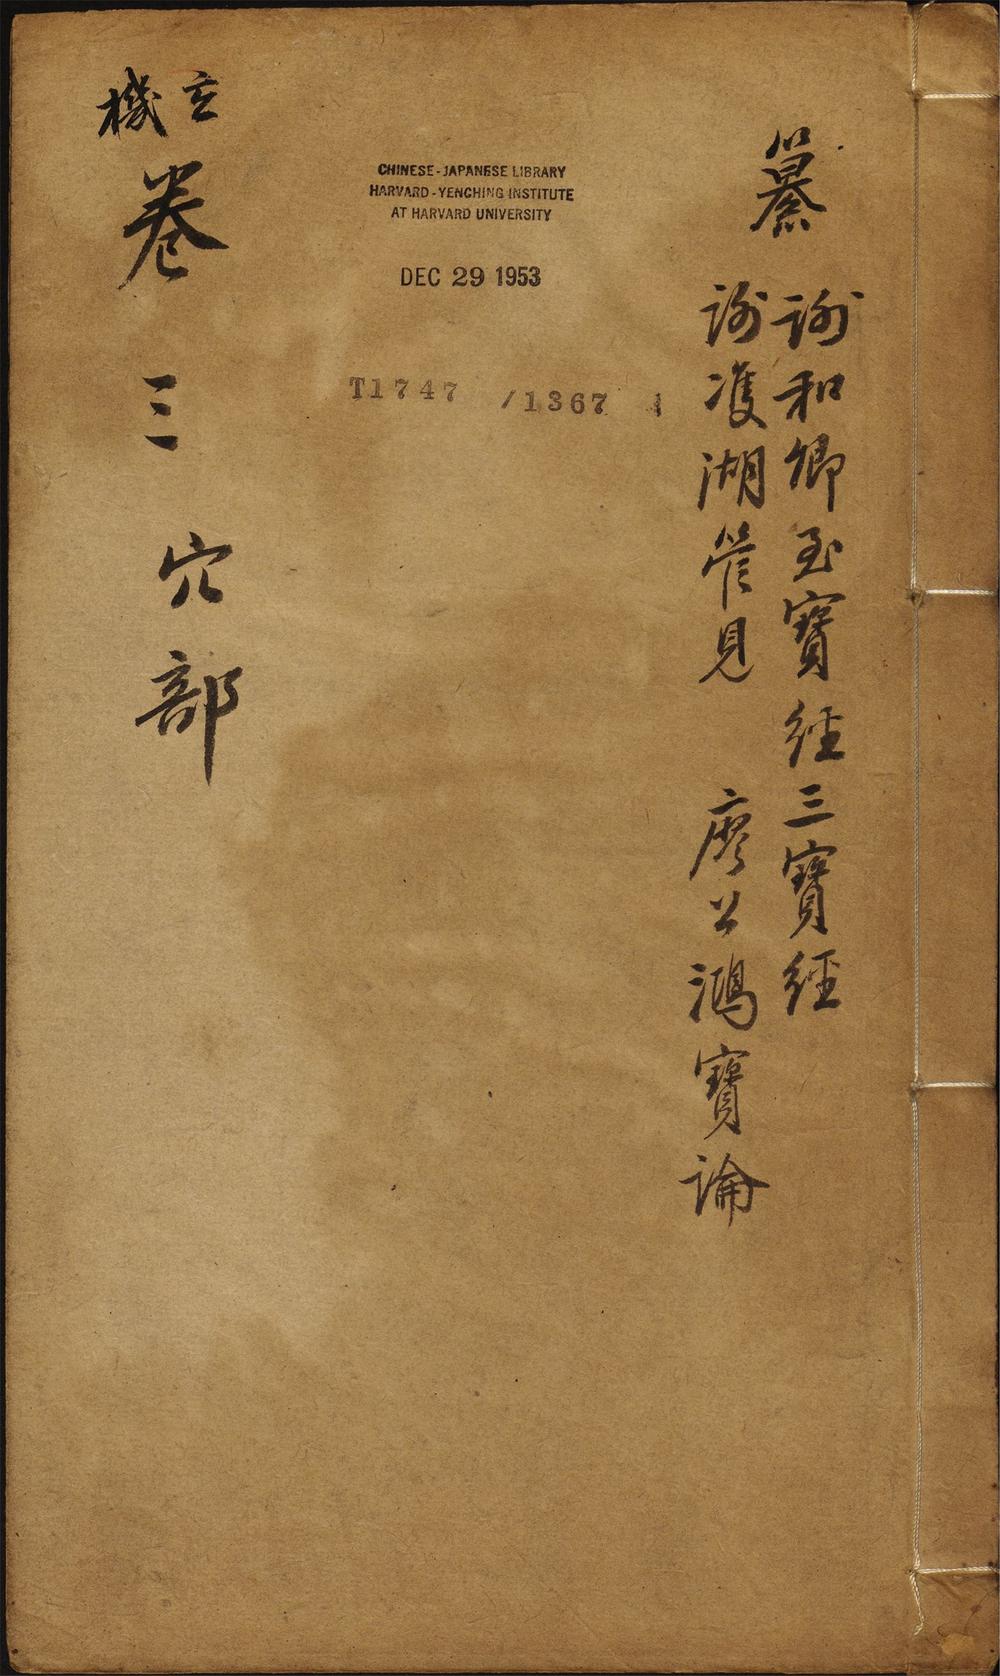 纂
謝和卿至寶經三寶經
謝雙湖管見 廖公鴻寶論
CHINESE-JAPANESE LIBRARY
HARVARD-YENCHING INSTITUTE
AT HARVARD UNIVERSITY
DEC 29 1953
T1747 /1367
玄機
卷三 穴部